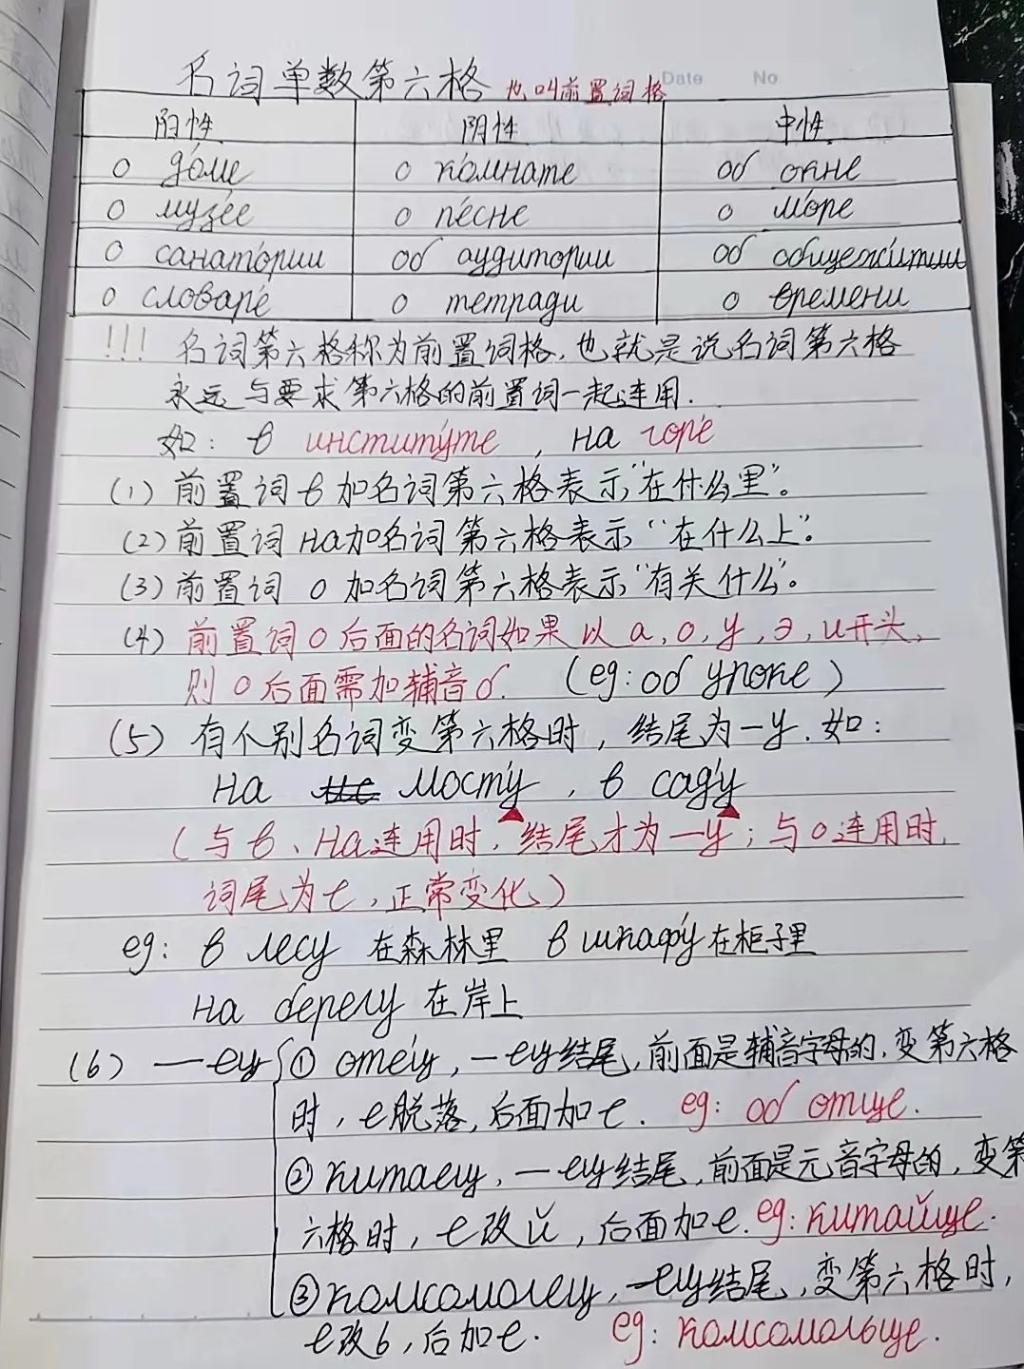 名词单数第六格 也叫前置词格 Date No
阳性 阴性 中性
о до́ме о ко́мнате об окне
о музе́е о пе́сне о мо́ре
о санато́рии об аудитории об общежи́тии
о словаре́ о тетради о времени
!!! 名词第六格称为前置词格,也就是说名词第六格
永远与要求第六格的前置词一起连用.
如: в институ́те , на горе́
(1) 前置词 в 加名词第六格表示"在什么里"。
(2) 前置词 на 加名词第六格表示"在什么上"。
(3) 前置词 о 加名词第六格表示"有关什么"。
(4) 前置词о后面的名词如果以 а, о, у, э, и开头,
则 о 后面需加辅音б. (eg: об уроке)
(5) 有个别名词变第六格时, 结尾为—у. 如:
на мосту́ , в саду́
(与 в、на连用时, 结尾才为—у; 与о连用时,
词尾为е, 正常变化)
eg: в лесу 在森林里 в шкафу́ 在柜子里
на берегу 在岸上
(6) —ец ① оте́ц, —ец结尾, 前面是辅音字母的, 变第六格
时, е脱落, 后面加е. eg: об отце.
② китаец, —ец结尾, 前面是元音字母的, 变第
六格时, е改й, 后面加е. eg: китайце.
③ комсомолец, —ец结尾, 变第六格时,
е改ь, 后加е. eg: комсомольце.